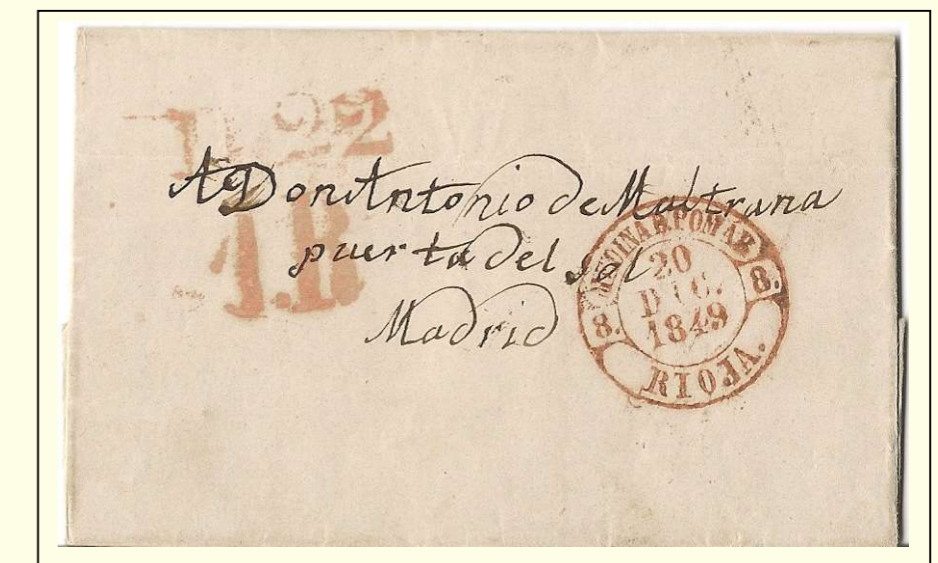 22
1.R
A Don Antonio de Maltrana
puerta del Sol
Madrid
MEDINA D POMAR
8. 8.
20
DIC.
1849
RIOJA.